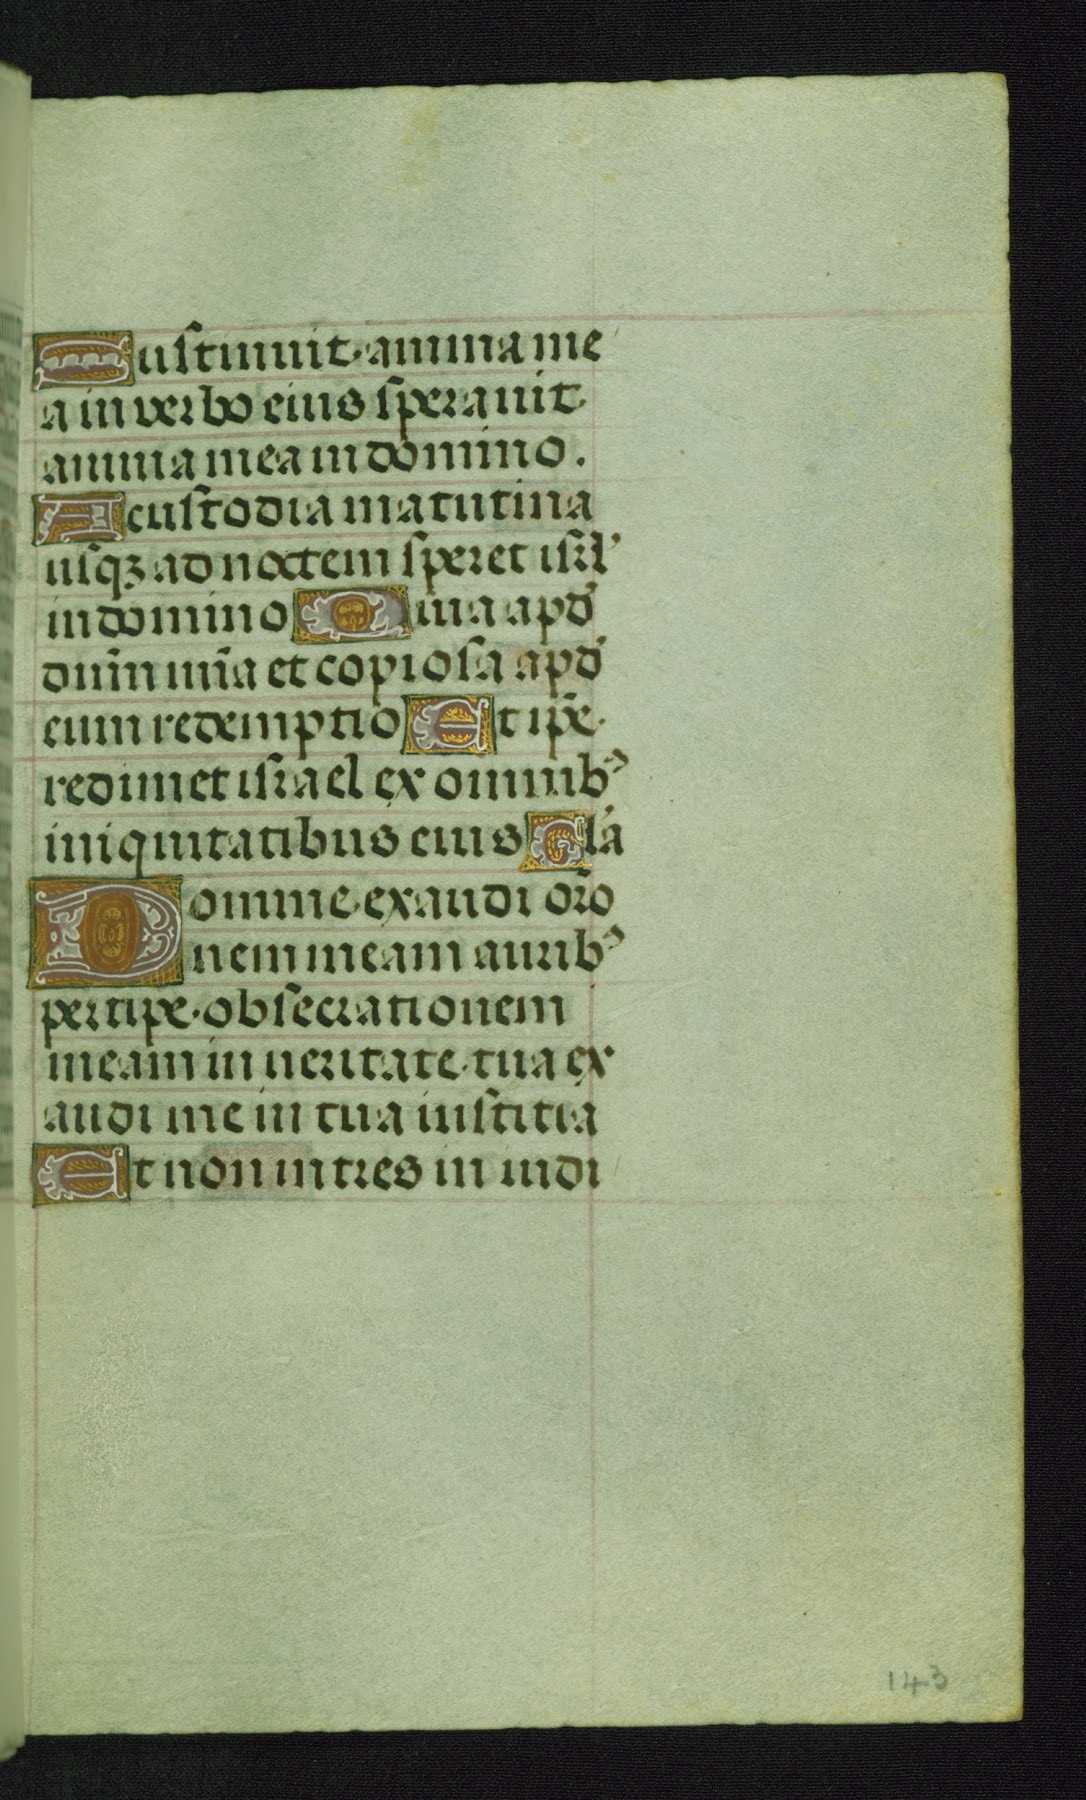 Sustinuit anima me
a in verbo eius speravit
anima mea in domino.
A custodia matutina
usqȝ ad noctem speret isrl'
in domino Quia apd'
dūm mīa et copiosa apd'
eum redemptio Et ipē
redimet israel ex omnibꝰ
iniquitatibus eius Glā
Domine exaudi orō
nem meam auribꝰ
percipe obsecrationem
meam in ueritate tua ex
audi me in tua iustitia
Et non intres in iudi
143